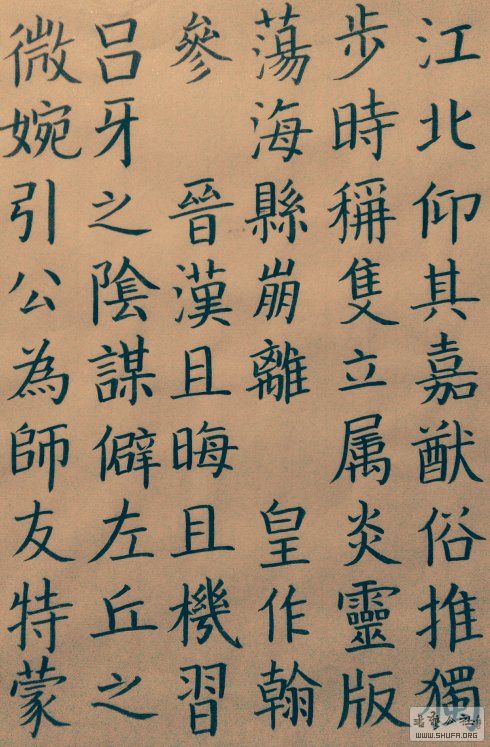 江北仰其嘉猷俗推獨
步時稱隻立属炎靈版
蕩海縣崩離 皇作翰
參 晉漢且晦且機習
呂牙之陰謀僻左丘之
微婉引公為師友特蒙
WWW.SHUFA.ORG